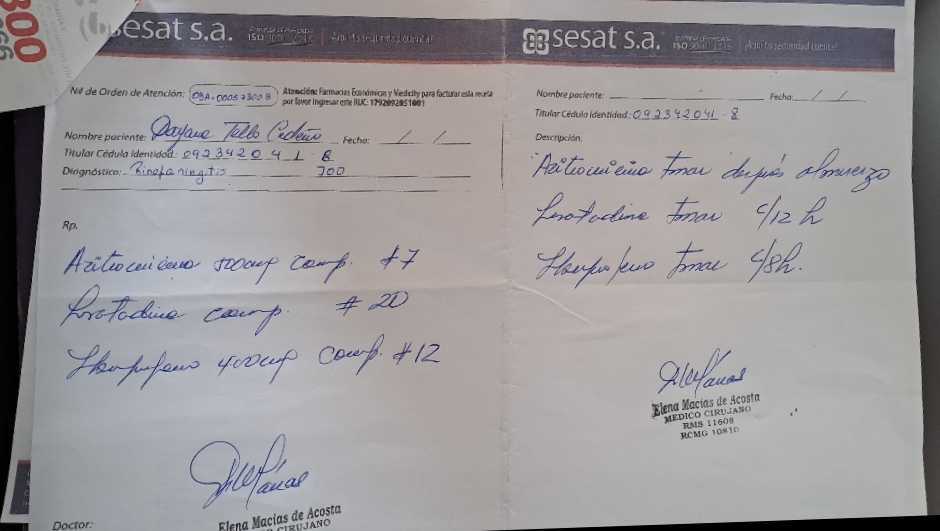 800
sesat s.a.
Nº de Orden de Atención: OSA-00057300 B
Atención: Farmacias Económicas y Medicity para facturar esta receta
por favor ingresar este RUC: 1792092851001
Nombre paciente: Dayana Tello Cedeño Fecha: / /
Titular Cédula Identidad: 092342041-8
Diagnóstico: Rinofaringitis J00
Rp.
Azitromicina 500mg comp. #7
Loratadina comp. # 20
Ibuprofeno 400mg comp. #12
Elena Macías de Acosta
MEDICO CIRUJANO
Doctor:
sesat s.a.
Nombre paciente: Fecha: / /
Titular Cédula Identidad: 092342041-8
Descripción:
Azitromicina tomar después almuerzo
Loratadina tomar c/12 h
Ibuprofeno tomar c/8h.
Elena Macías de Acosta
MEDICO CIRUJANO
RMS 11608
RCMG 10810